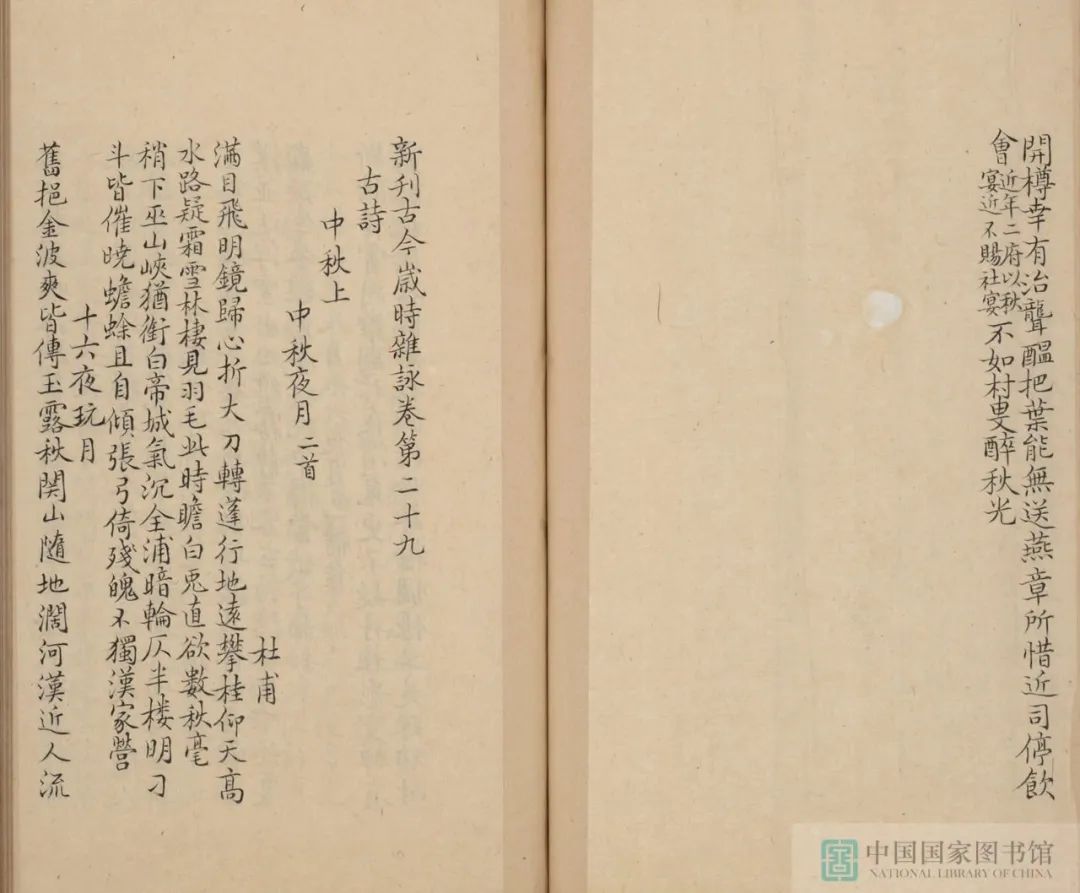 開樽幸有治聾醞把葉能無送燕章所惜近司停飲
會近年二府以秋
宴近不賜社宴不如村叟醉秋光
新刊古今歲時雜詠卷第二十九
古詩
中秋上
中秋夜月二首
杜甫
滿目飛明鏡歸心折大刀轉蓬行地遠攀桂仰天高
水路疑霜雪林棲見羽毛此時瞻白兎直欲數秋毫
稍下巫山峽猶銜白帝城氣沉全浦暗輪仄半楼明刁
斗皆催曉蟾蜍且自傾張弓倚殘魄不獨漢家營
十六夜玩月
舊挹金波爽皆傳玉露秋関山随地濶河漢近人流
中国国家图书馆
NATIONAL LIBRARY OF CHINA